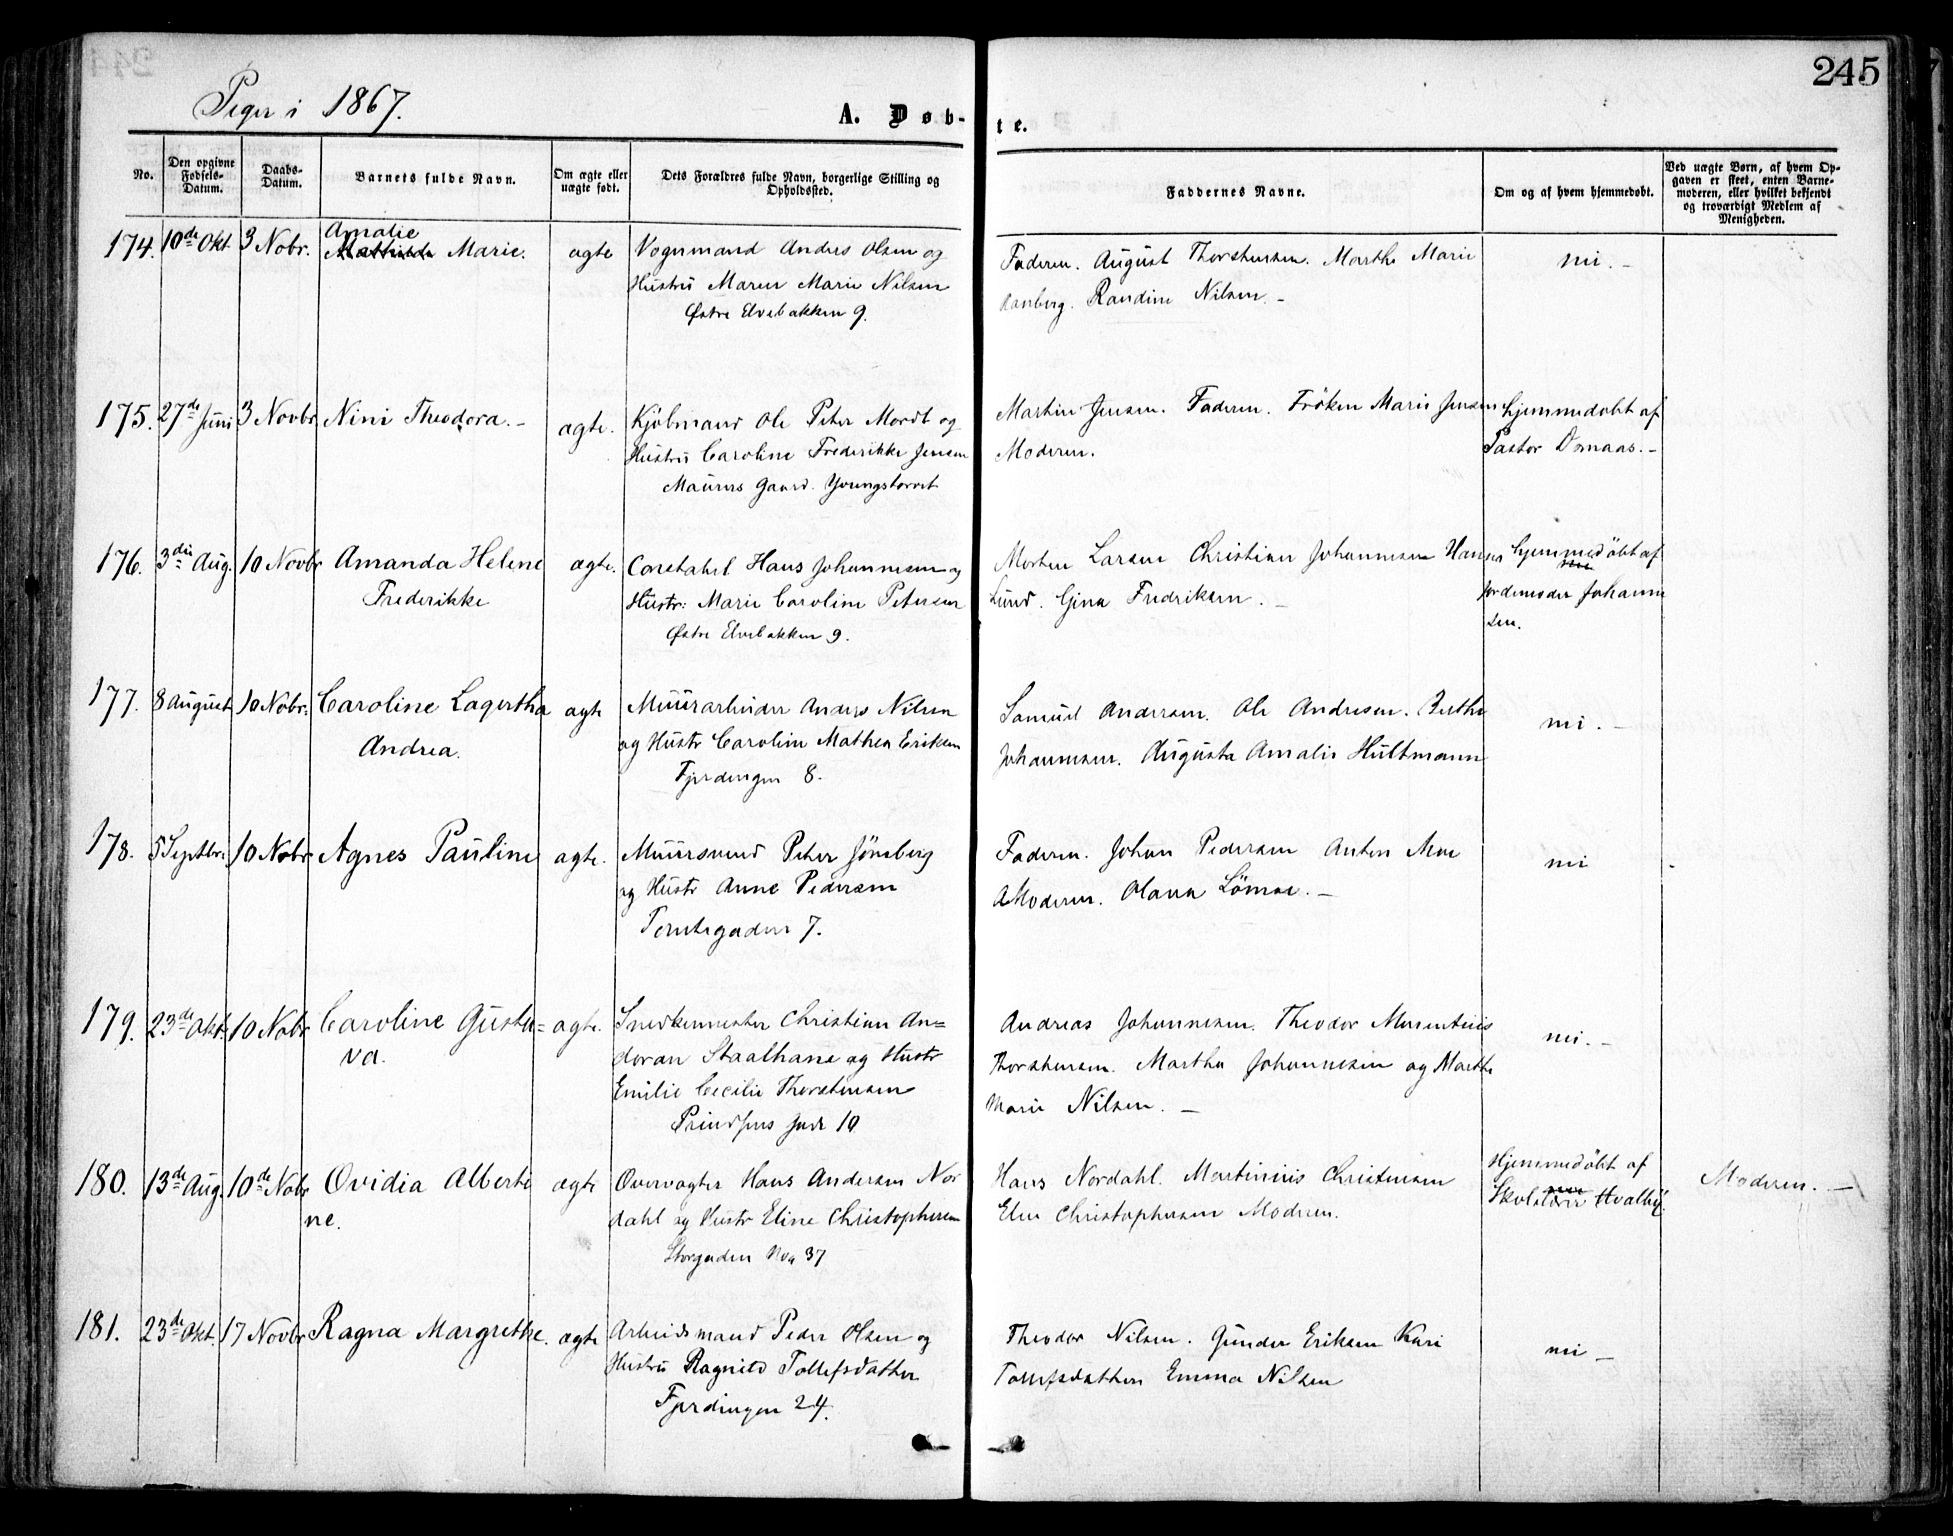 245
Piger i 1867.
A. Døbte.
No.
Den opgivne Fødsels-Datum.
Daabs-Datum.
Barnets fulde Navn.
Om ægte eller uægte født.
Dets Forældres fulde Navn, borgerlige Stilling og Opholdssted.
Faddernes Navne.
Om og af hvem hjemmedøbt.
Ved uægte Børn, af hvem Op-
gaven er skeet, enten Barne-
moderen, eller hvilket bekjendt
og troværdigt Medlem af
Menigheden.
174. 10de Okt 3 Nobr. Amalie
Mathilda Marie. ægte
Vognmand Andres Olsen og
Hustru Maren Marie Nilsen
Østre Elvebakken 9.
Faderen. August Thorstensen. Marthe Marie
Randine Nilsen. -
nei. -
175. 27de Juni 3 Novbr. Nini Theodora. - ægte.
Kjøbmand Ole Peter Mordt og
Hustru Caroline Frederikke Jensen
Maurers Gaard. Youngstorvet
Martin Jensen. Faderen. Frøken Marie Jensen
Moderen.
hjemmedøbt af
Pastor Osmaas. -
176. 3die Aug. 10 Novbr Amanda Helene
Frederikke
ægte.
Hans Johannesen og
Hustr: Marie Caroline Petersen
Østre Elvebakken 9.
Morten Larsen Christian Johannesen Hanna
Lund. Gina Fredriksen. -
hjemmedøbt af
nei
Jordemoder Johanne
sen.
177. 8 August 10 Nobr. Caroline Lagertha
Andrea.
ægte
Muurarbeider Anders Nilsen
og Hustr Caroline Mathea Eriksen
Fjerdingen 8.
Samuel Andersen. Ole Andresen. Berthe
Johannesen. Augusta Amalie Hultmann
nei. -
178. 5 Septbr. 10 Nobr Agnes Pauline ægte.
Muursvend Peter Jönsberg
og Hustr Anne Pedersen
Torvtegaden 7.
Faderen. Johan Pedersen Anton Moe
Moderen. Olava Lömoe. -
nei
179. 23de Okt. 10 Nobr Caroline Gusta=
va.
ægte.
Snedkermester Christian An=
dersen Staalhane og Hustr
Emilie Cecilie Thorstensen
Prindsens Gade 10
Andreas Johannesen. Theodor Marentius
Thorstensen. Martha Johannesen og Marthe
Marie Nilsen. -
nei. -
180. 13de Aug. 10de Nobr Ovidia Alberti
ne.
ægte
Overvogter Hans Andersen Nor
dahl og Hustr Eline Christophersen
Storgaden No 37
Hans Nordahl. Martinius Christensen
Elen Christophersen Moderen.
Hjemmedøbt af
Skolelærer Hvalbye.
Moderen. -
181. 23de Okt. 17 Novbr Ragna Margrethe. ægte
Arbeidsmand Peder Olsen og
Hustru Ragnild Tollefsdatter
Fjerdingen 24.
Theodor Nilsen. Gunder Eriksen Kari
Tollefsdatter Emma Nilsen
nei -